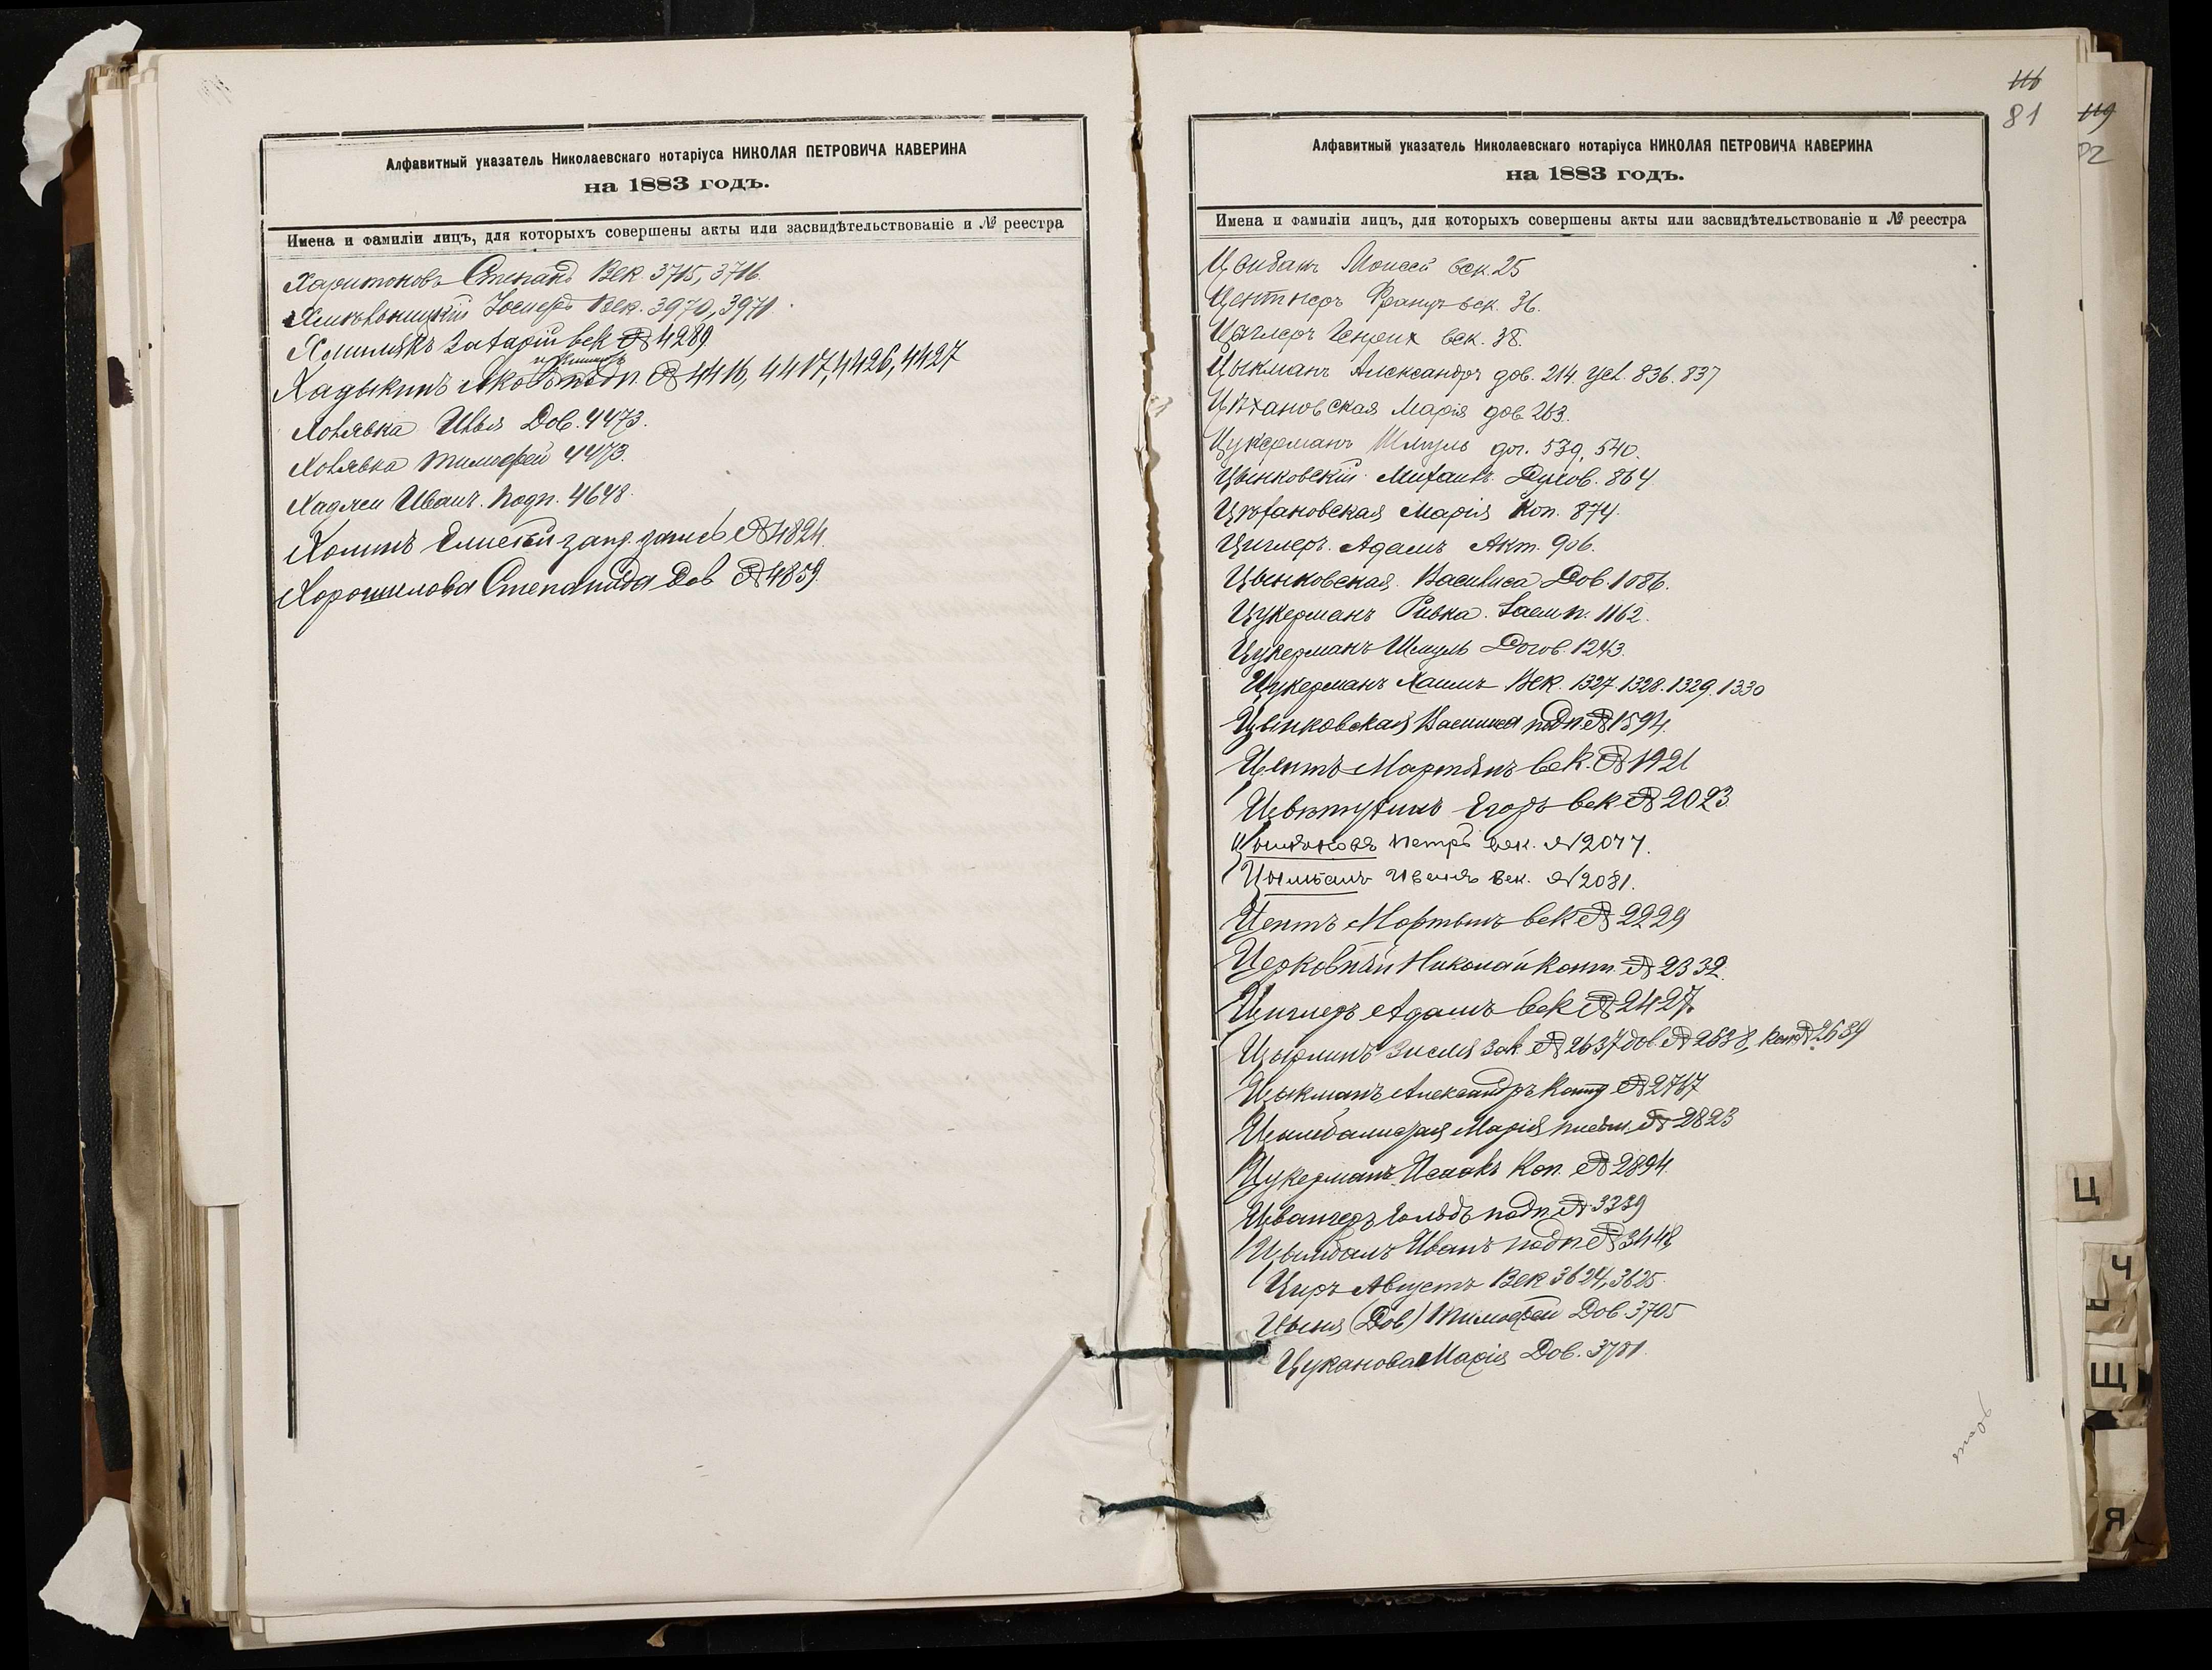 Алфавитный указатель Николаевскаго нотаріуса НИКОЛАЯ ПЕТРОВИЧА КАВЕРИНА
на 1883 годъ.
Имена и фамиліи лицъ, для которыхъ совершены акты или засвидѣтельствованіе и № реестра
Харитоновъ Степанъ Век. 3715, 3716.
Хмельницкій Іосифъ Век. 3970, 3971.
Захарій век № 4289
Хадыкинъ подп. № 4416, 4417, 4426, 4427
Холявка Илья Дов. 4473.
Холявка Тимофей 4473.
Иванъ. подп. 4648.
Елисей № 4824.
Хорошилова Степанида Дов № 4859.
116
81
Алфавитный указатель Николаевскаго нотаріуса НИКОЛАЯ ПЕТРОВИЧА КАВЕРИНА
на 1883 годъ.
Имена и фамиліи лицъ, для которыхъ совершены акты или засвидѣтельствованіе и № реестра
Цвибакъ Моисей век. 25
Центнеръ Францъ век. 36.
Генрих век. 38.
Цыкманъ Александръ дов. 214. 836. 837
Цѣхановская Марія дов 263.
Цукерманъ Шмуль дог. 539, 540.
Цынковскій Михаилъ Духов. 864.
Цѣхановская Марія Коп. 874.
Циглеръ Адамъ Акт. 906.
Цынковская Василиса Дов. 1086.
Цукерманъ Ривка. 1162.
Цукерманъ Шмуль Догов. 1243.
Цукерманъ Хаимъ Век. 1327. 1328. 1329. 1330
Цынковская Василиса подп. № 1594.
Центъ Мартынъ век. № 1921
Цвѣтухинъ Егоръ век № 2023
Петръ век. № 2077.
Цымбалъ Иванъ век. № 2081.
Центъ Мартынъ век № 2229
Церковный Николай Конт. № 2332.
Циглеръ Адамъ век № 2427.
Цырлинъ Зисля № 2637 дов. № 2638, № 2639
Цыкманъ Александръ № 2767
Марія № 2823
Цукерманъ Исаакъ Коп. № 2894.
Цвангеръ подп. № 3339
Цымбалъ Иванъ подп № 3448
Циръ Августъ Век 3624, 3625.
(Дов) Тимофей Дов. 3705
Цуканова Марія Дов. 3781.
119
Ц
Ч
Щ
Я